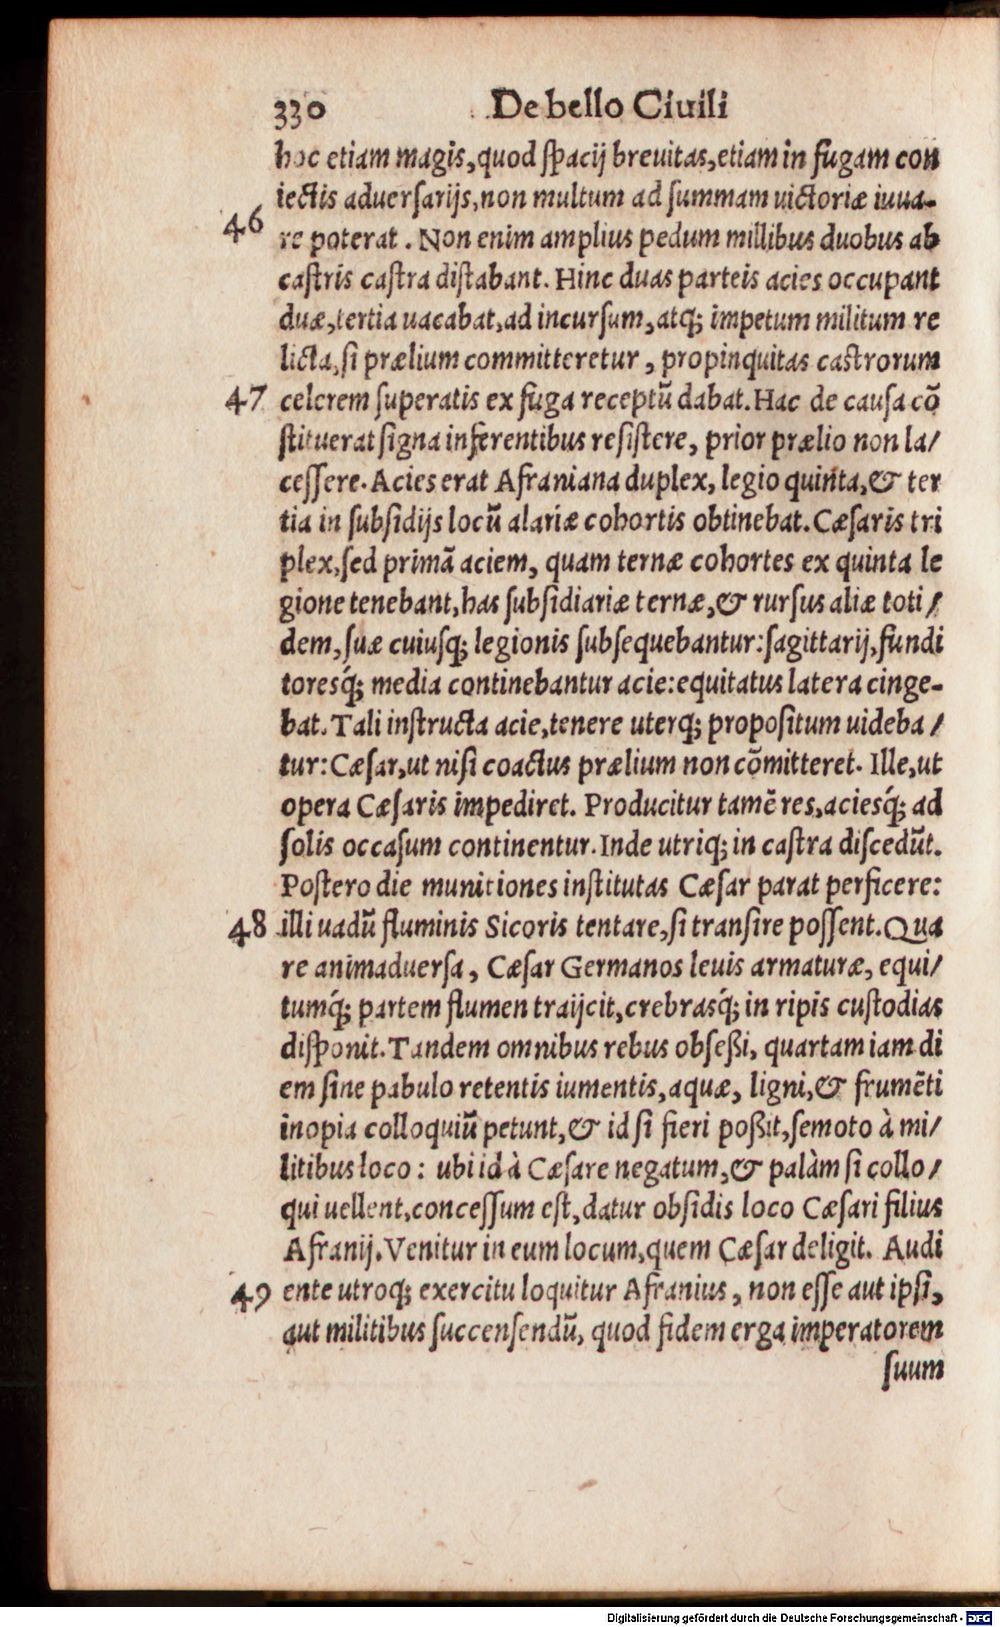 330 De bello Ciuili
hoc etiam magis, quod ſpacij breuitas, etiam in fugam con
iectis aduerſarijs, non multum ad ſummam uictoriæ iuua-
46 re poterat. Non enim amplius pedum millibus duobus ab
caſtris caſtra diſtabant. Hinc duas parteis acies occupant
duæ, tertia uacabat, ad incurſum, atq; impetum militum re
licta, ſi prælium committeretur, propinquitas caſtrorum
47 celerem ſuperatis ex fuga receptũ dabat. Hac de cauſa cõ
ſtituerat ſigna inferentibus reſiſtere, prior prælio non la/
ceſſere. Acies erat Afraniana duplex, legio quinta, & ter
tia in ſubſidijs locũ alariæ cohortis obtinebat. Cæſaris tri
plex, ſed primã aciem, quam ternæ cohortes ex quinta le
gione tenebant, has ſubſidiariæ ternæ, & rurſus aliæ toti/
dem, ſuæ cuiuſq; legionis ſubſequebantur: ſagittarij, fundi
toresq́; media continebantur acie: equitatus latera cinge-
bat. Tali inſtructa acie, tenere uterq; propoſitum uideba/
tur: Cæſar, ut niſi coactus prælium non cõmitteret. Ille, ut
opera Cæſaris impediret. Producitur tamẽ res, aciesq́; ad
ſolis occaſum continentur. Inde utriq; in caſtra diſcedũt.
Poſtero die munitiones inſtitutas Cæſar parat perficere:
48 illi uadũ fluminis Sicoris tentare, ſi tranſire poſſent. Qua
re animaduerſa, Cæſar Germanos leuis armaturæ, equi/
tumq́; partem flumen traijcit, crebrasq́; in ripis cuſtodias
diſponit. Tandem omnibus rebus obſeßi, quartam iam di
em ſine pabulo retentis iumentis, aquæ, ligni, & frumẽti
inopia colloquiũ petunt, & id ſi fieri poßit, ſemoto à mi/
litibus loco: ubi id à Cæſare negatum, & palàm ſi collo/
qui uellent, conceſſum eſt, datur obſidis loco Cæſari filius
Afranij. Venitur in eum locum, quem Cæſar deligit. Audi
49 ente utroq; exercitu loquitur Afranius, non eſſe aut ipſi,
aut militibus ſuccenſendũ, quod fidem erga imperatorem
ſuum
Digitalisierung gefördert durch die Deutsche Forschungsgemeinschaft - DFG